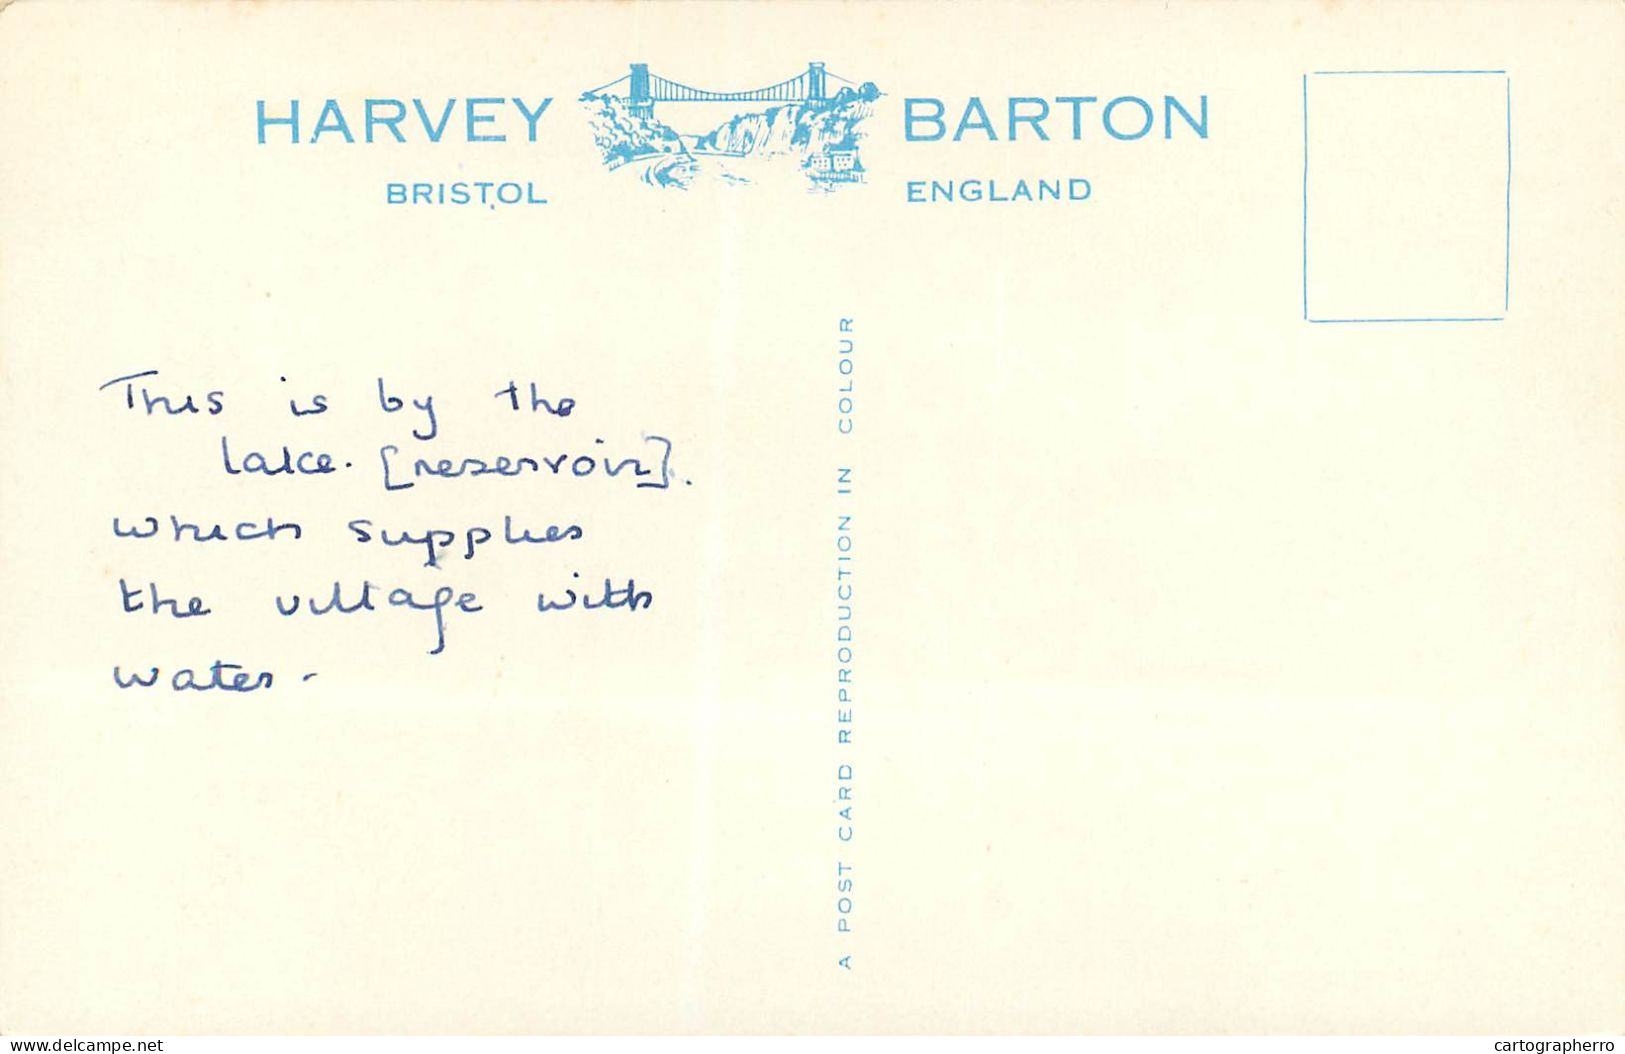 HARVEY BARTON
BRISTOL ENGLAND
This is by the
lake. [reservoir].
which supplies
the village with
water -
A POST CARD REPRODUCTION IN COLOUR
www.delcampe.net
cartographerro